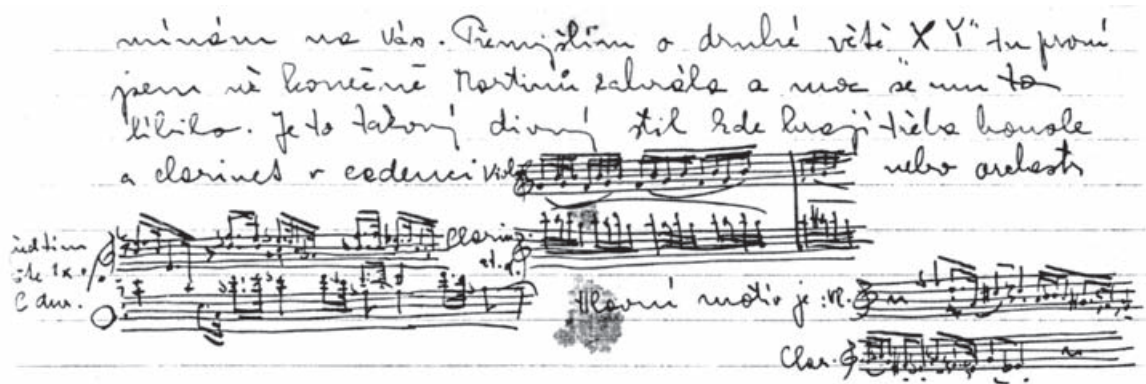 mínám na Vás. Přemýšlím o druhé větě X Y" tu první
jsem už konečně Martinů zahrála a moc se mu to
líbilo. Je to takový divný stil kde hrají třeba housle
a clarinet v cadenci Viol. nebo orchestr
Clarinet
C dur.
Hlavní motiv je: Vl.
Clar.